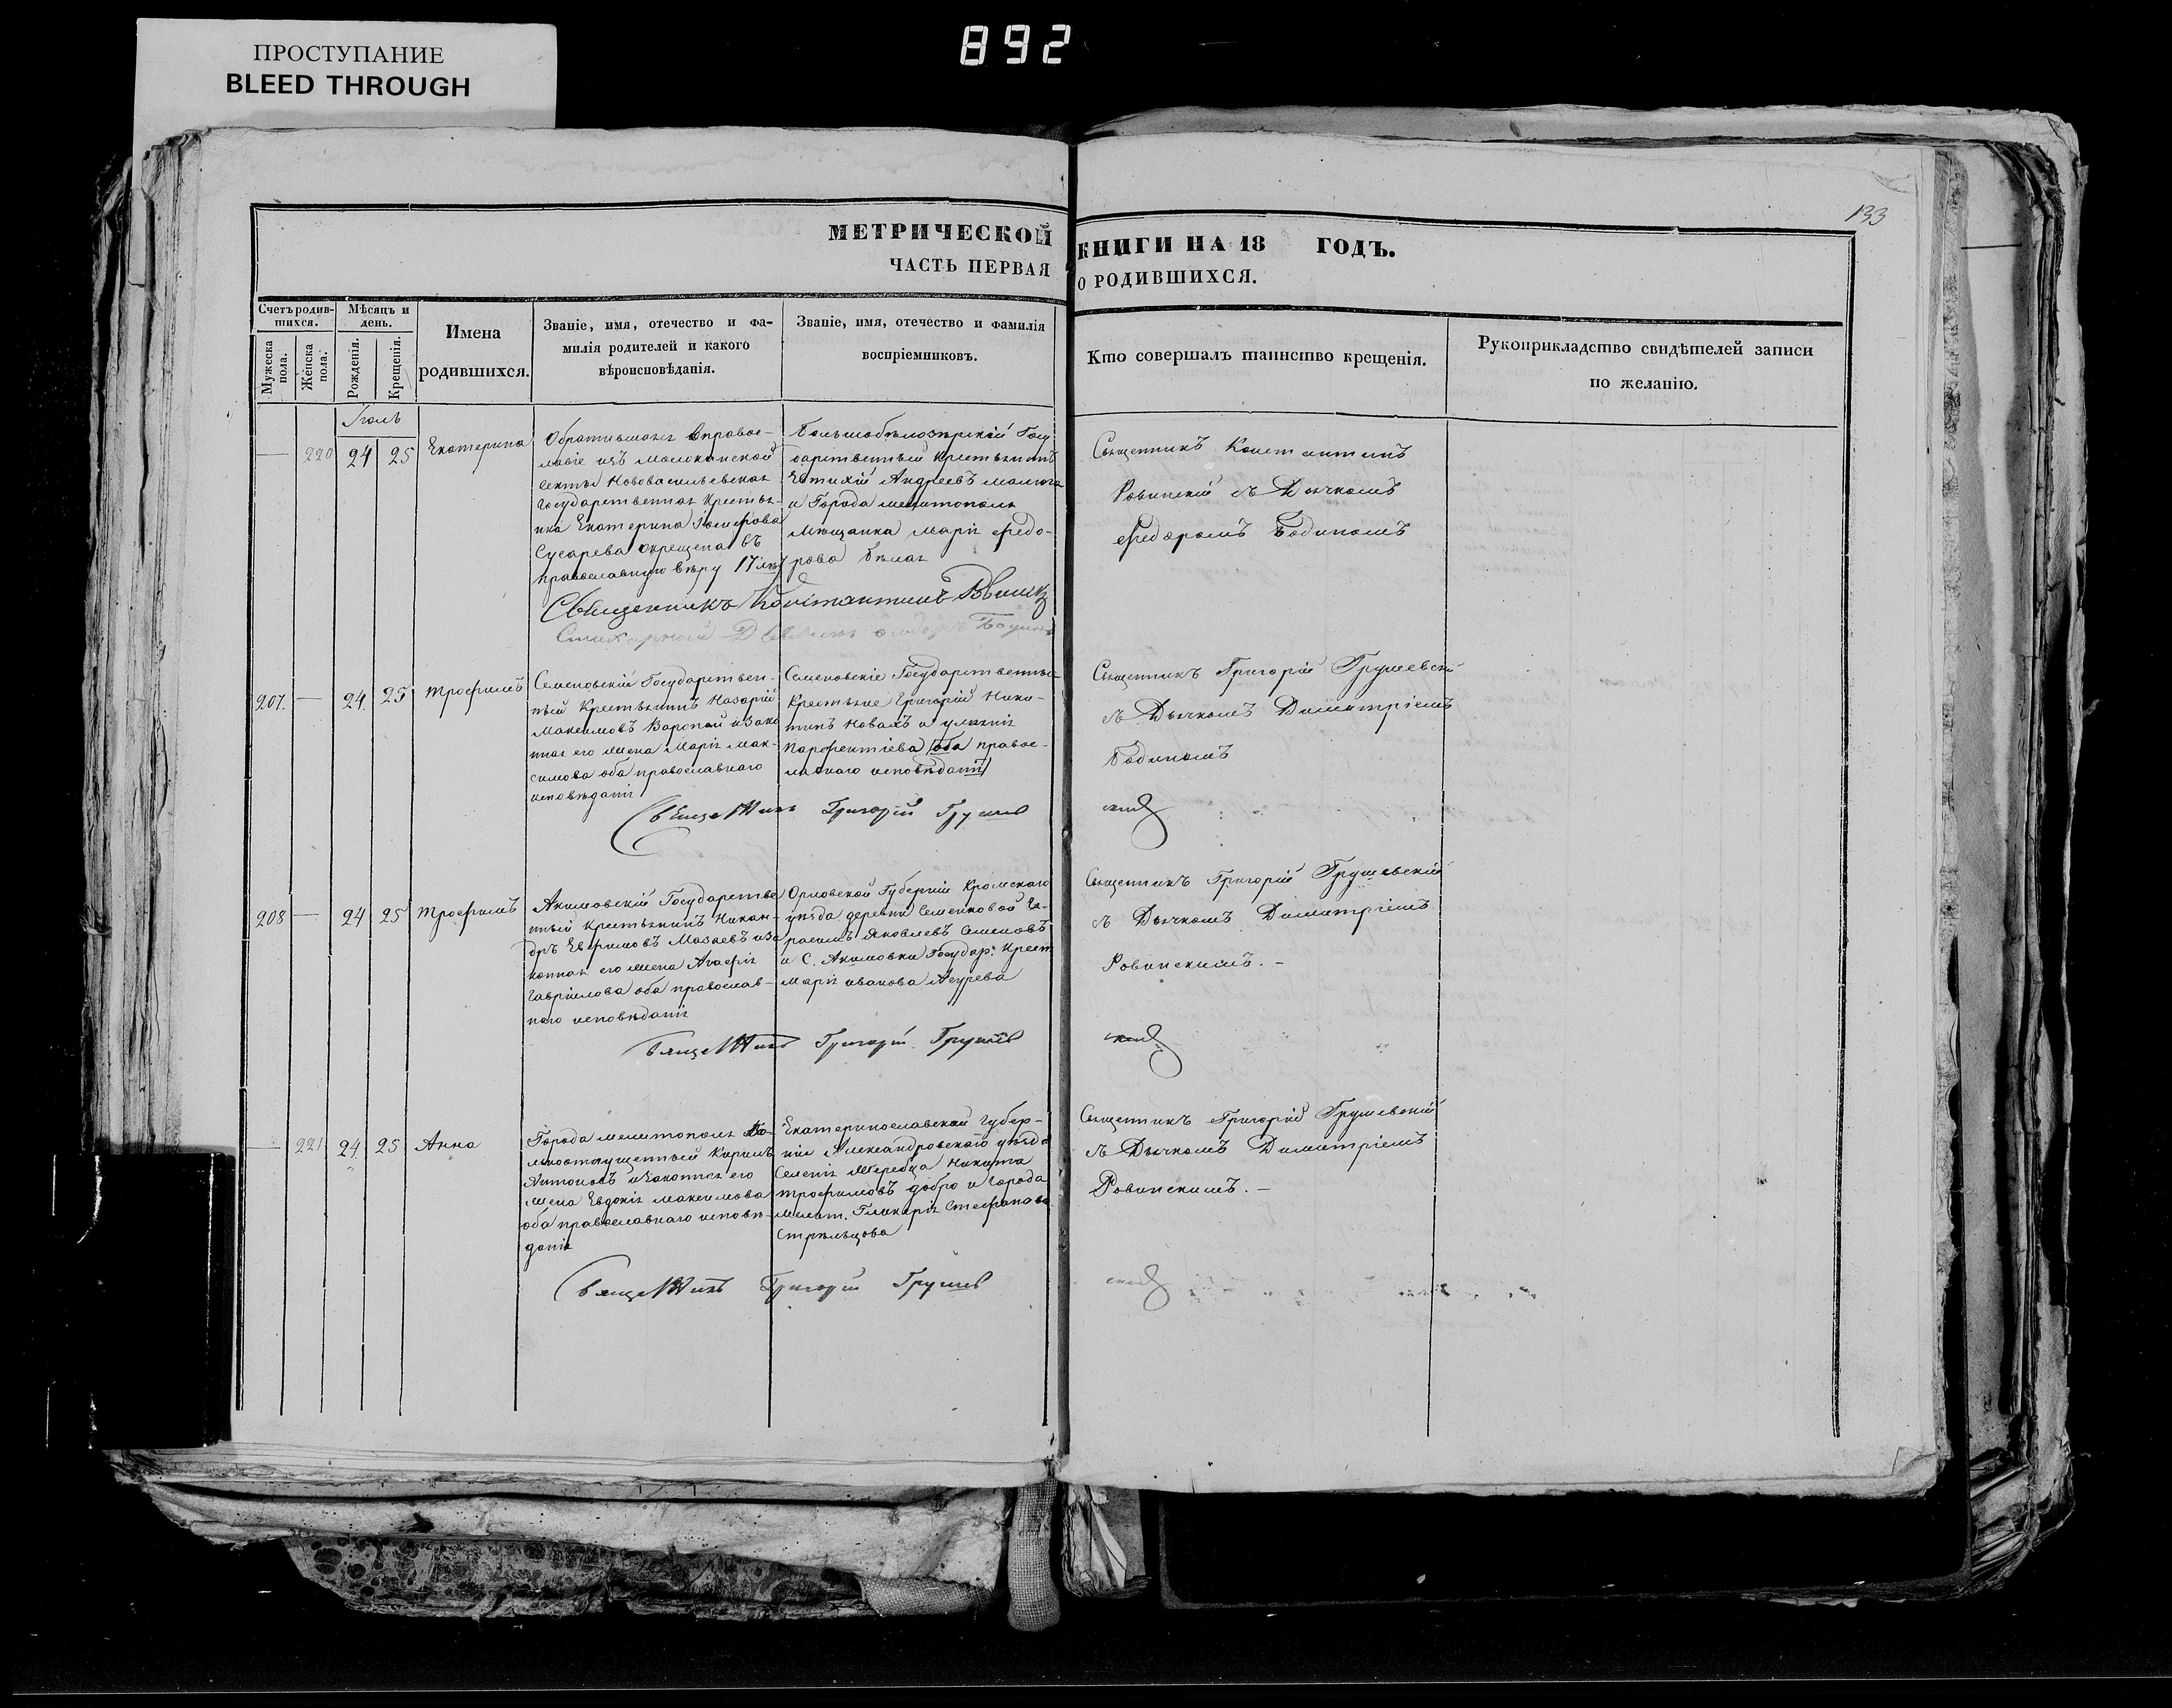 892
ПРОСТУПАНИЕ
BLEED THROUGH
133
МЕТРИЧЕСКОЙ КНИГИ НА 18 ГОДЪ.
ЧАСТЬ ПЕРВАЯ О РОДИВШИХСЯ.
Счетъ родив-
шихся.
Мужеска
пола.
Женска
пола.
Мѣсяцъ и
день.
Рожденія.
Крещенія.
Имена
родившихся.
Званіе, имя, отечество и фа-
милія родителей и какого
вѣроисповѣданія.
Званіе, имя, отечество и фамилія
воспріемниковъ.
Кто совершалъ таинство крещенія.
Рукоприкладство свидѣтелей записи
по желанію.
Іюль
220 24 25 Екатерина
Обратившаяся вправос-
лавіе изъ Молоканской
секты Нововасильевская
Государственная Крестья-
нка Екатерина
Сусарева окрещена въ
православную вѣру 17 лѣт
Большобѣлозѣрскій Госу
дарственный Крестьянинъ
Евтихій Андреевъ Малюга
и Города Мелитополя
Мѣщанка Марія Федо-
рова Бѣлая
Священникъ Константинъ
Ровинскій съ Дьячкомъ
Федоромъ Бодиномъ
Священникъ Константинъ
Стихарный
207. — 24. 25 Трофимъ
Семеновскій Государствен-
ный Крестьянинъ Назарій
Максимовъ Воропай и зако
нная его жена Марія Мак-
симова оба православнаго
исповѣданія
Семеновскіе Государственные
Крестьяне Григорій Ники-
тинъ Новахъ и Ульянія
Парфентіева (оба правос-
лавнаго исповѣданія)
Священникъ Григорій Грушевскій
съ Дьячкомъ Димитріемъ
Бодиномъ
Священникъ Григорій Грушев
скій
208 — 24 25 Трофимъ
Акимовскій Государстве
нный Крестьянинъ Никан-
оръ Ефимовъ Мазаевъ и за
конная его жена Агафія
Гавріилова оба православ-
наго исповѣданія
Орловской Губерніи Кромскаго
уѣзда деревни Семенковой Ге-
расимъ Яковлевъ Семеновъ
и С. Акимовки Государ: Крест
Марія Иванова
Священникъ Григорій Грушевскій
съ Дьячкомъ Димитріемъ
Ровинскимъ. -
Священникъ Григорій Грушев
скій
— 221 24 25 Анна
Города Мелитополя Во-
льноотпущенный Кирилъ
Антоновъ и законная его
жена Евдокія Максимова
оба православнаго исповѣ-
данія
Екатеринославской Губер-
ніи Александровскаго уѣзда
Селенія Жеребца Никита
Трофимовъ Добро и Города
Мелит. Гликерія Стефанова
Стрѣльцова
Священникъ Григорій Грушевскій
съ Дьячкомъ Димитріемъ
Ровинскимъ. -
Священникъ Григорій Грушев
скій